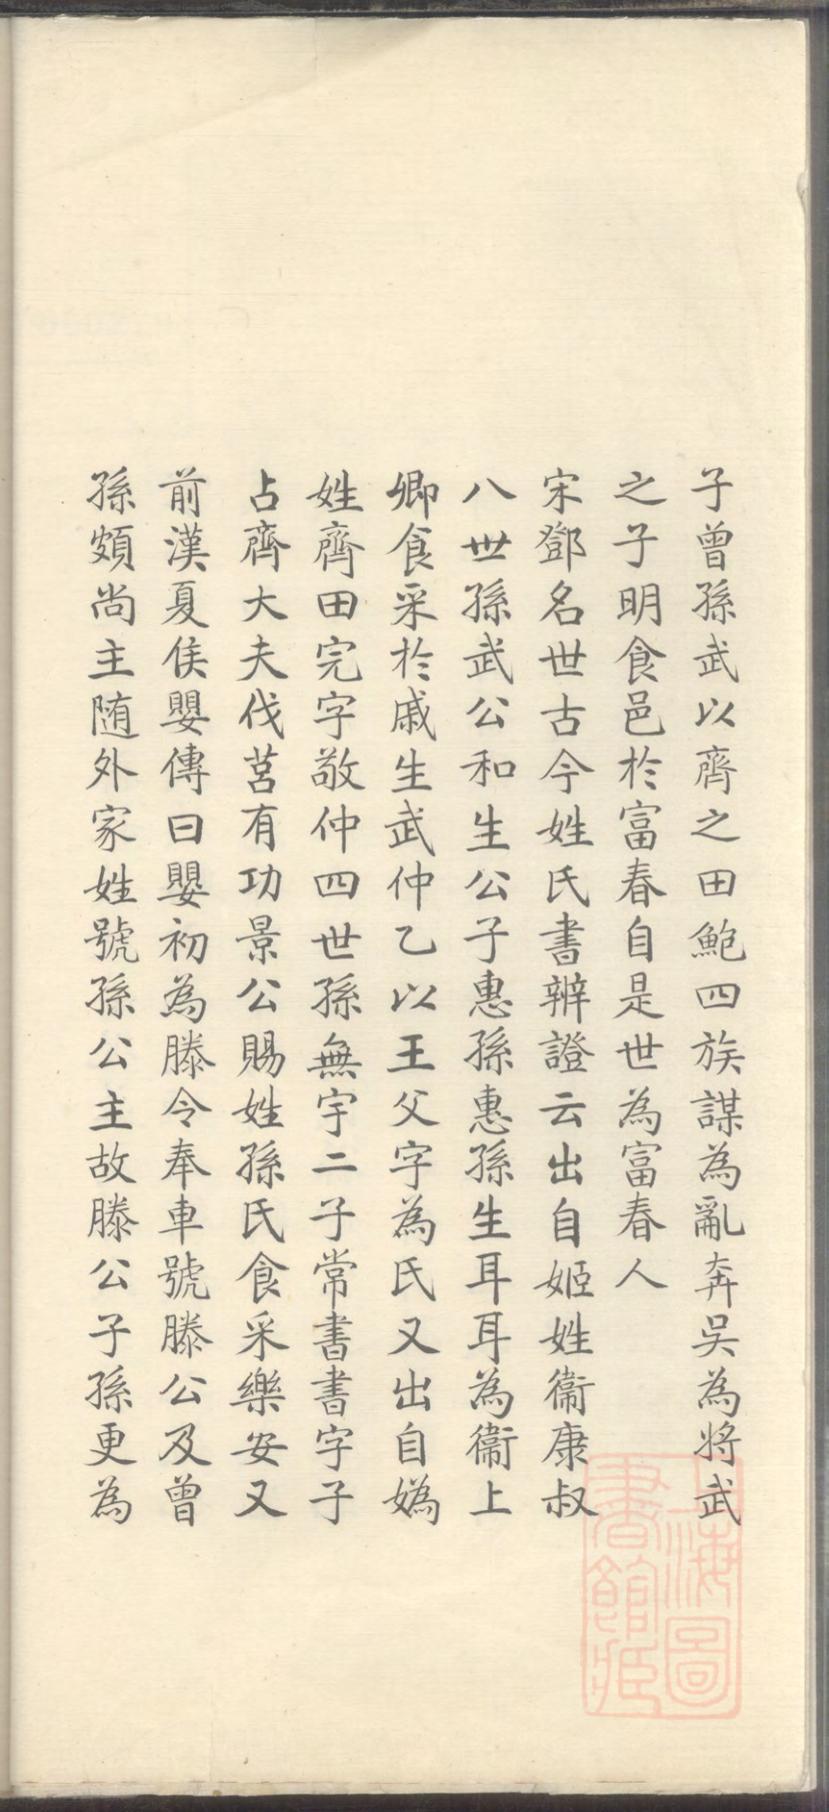 子曾孫武以齊之田鮑四族謀為亂奔吳為將武
之子明食邑於富春自是世為富春人
宋鄧名世古今姓氏書辨證云出自姬姓衞康叔
八世孫武公和生公子惠孫惠孫生耳耳為衞上
卿食采於戚生武仲乙以王父字為氏又出自媯
姓齊田完字敬仲四世孫無宇二子常書書字子
占齊大夫伐莒有功景公賜姓孫氏食采樂安又
前漢夏侯嬰傳曰嬰初為滕令奉車號滕公及曾
孫頗尚主随外家姓號孫公主故滕公子孫更為
上海圖
書館藏